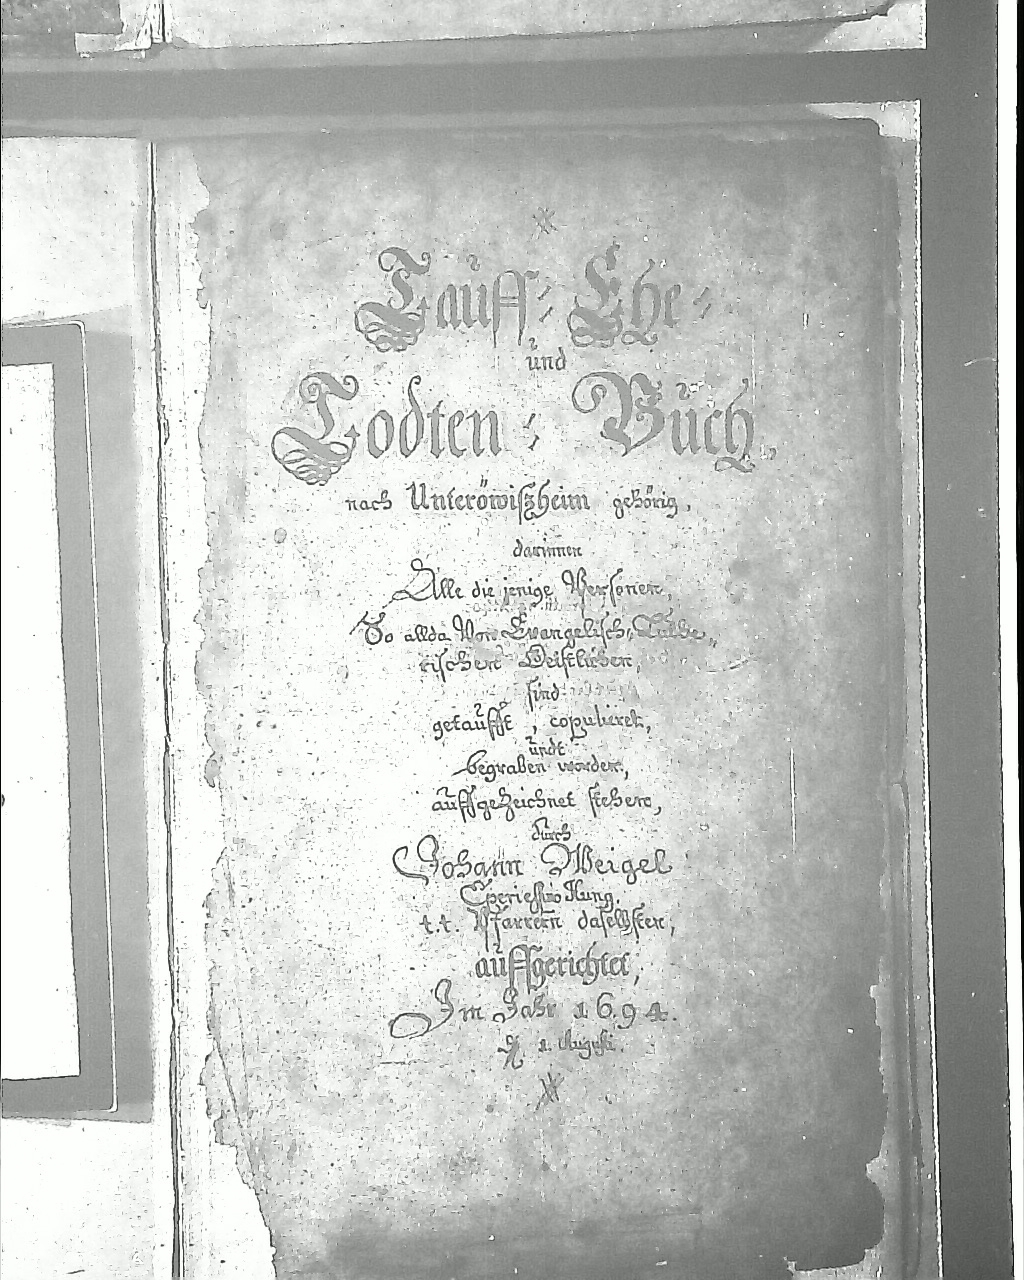 Tauff- Ehe-
und
Todten- Buch,
nach Unteröwiszheim gehörig,
darinnen
Alle die jenige Personen,
So allda Von Evangelisch-Luthe-
rischen Geistlichen,
sind
getaufft, copuliret,
undt
begraben worden,
auffgezeichnet stehen,
durch
Johann Weigel
Eperiessino Hung.
t.t. Pfarrern daselbsten,
auffgerichtet,
Im Jahr 1694.
1. Augusti.